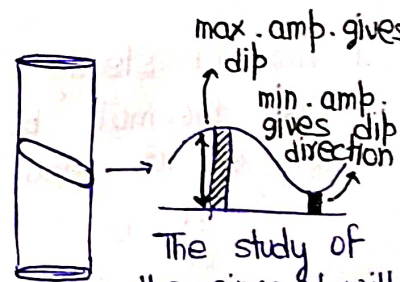 max. amp. gives
dip
min. amp.
gives dip
direction
The study of